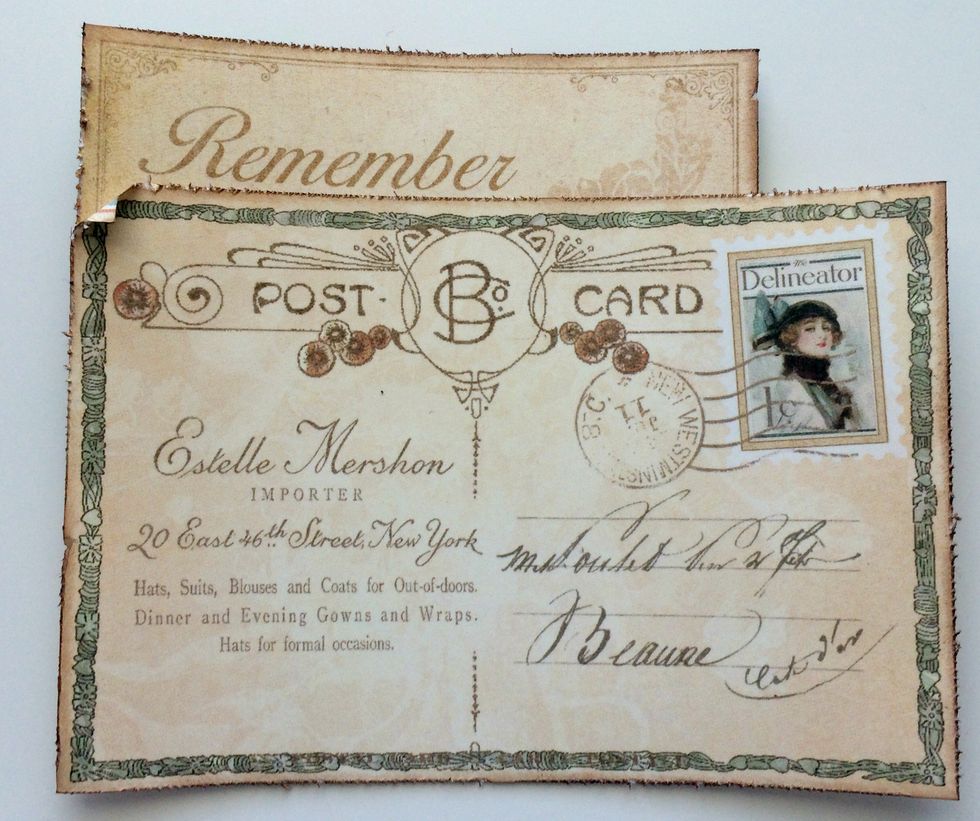 Remember
POST CARD
BCo.
The
Delineator
1c
B.C. NEW WESTMINSTER
11
Estelle Mershon
IMPORTER
20 East 46th Street, New York
Hats, Suits, Blouses and Coats for Out-of-doors.
Dinner and Evening Gowns and Wraps.
Hats for formal occasions.
Beaune
d'or